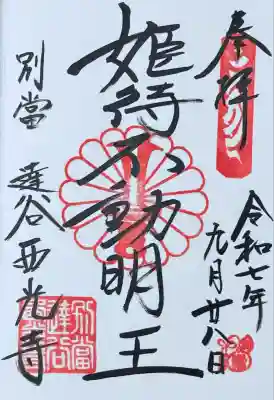 奉拝
令和七年
九月廿八日
姫待不動明王
別當 達谷西光寺
別當達谷